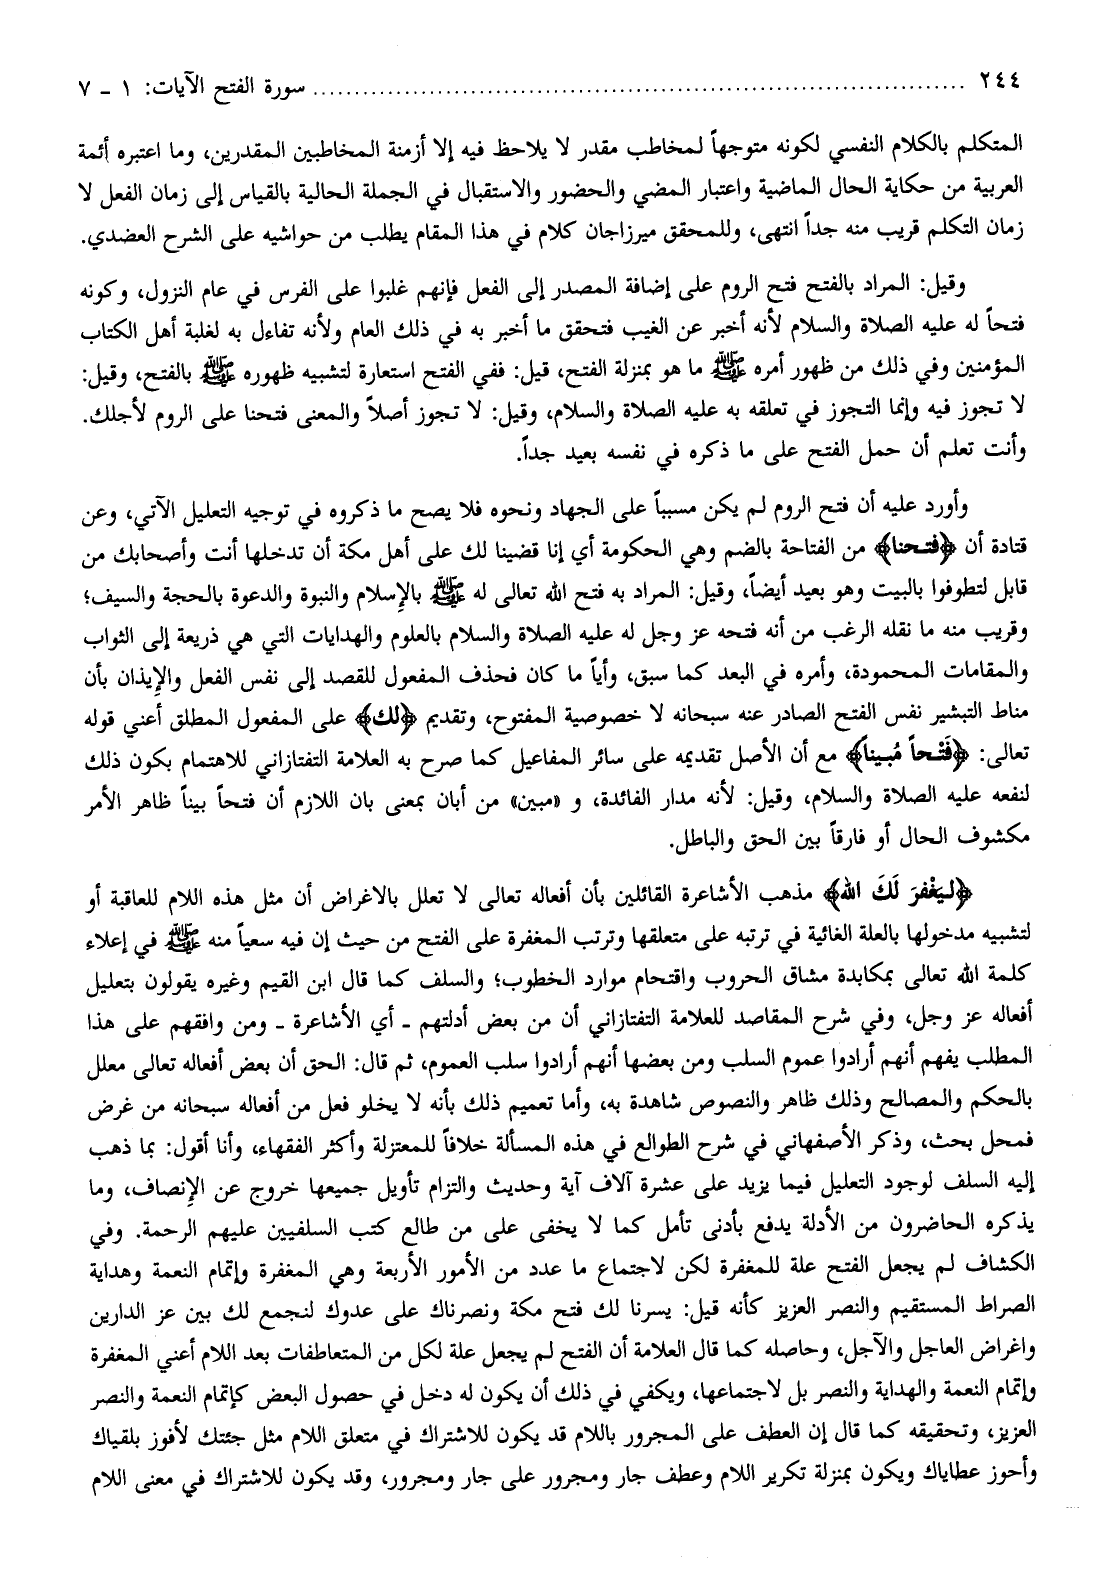 ٢٤٤ ........................................................ سورة الفتح الآيات: ١ - ٧
المتكلم بالكلام النفسي لكونه متوجهاً لمخاطب مقدر لا يلاحظ فيه إلا أزمنة المخاطبين المقدرين، وما اعتبره أئمة
العربية من حكاية الحال الماضية واعتبار المضي والحضور والاستقبال في الجملة الحالية بالقياس إلى زمان الفعل لا
زمان التكلم قريب منه جداً انتهى، وللمحقق ميرزاجان كلام في هذا المقام يطلب من حواشيه على الشرح العضدي.
وقيل: المراد بالفتح فتح الروم على إضافة المصدر إلى الفعل فإنهم غلبوا على الفرس في عام النزول، وكونه
فتحاً له عليه الصلاة والسلام لأنه أخبر عن الغيب فتحقق ما أخبر به في ذلك العام ولأنه تفاءل به لغلبة أهل الكتاب
المؤمنين وفي ذلك من ظهور أمره ﷺ ما هو بمنزلة الفتح، قيل: ففي الفتح استعارة لتشبيه ظهوره ﷺ بالفتح، وقيل:
لا تجوز فيه وإنما التجوز في تعلقه به عليه الصلاة والسلام، وقيل: لا تجوز أصلاً والمعنى فتحنا على الروم لأجلك.
وأنت تعلم أن حمل الفتح على ما ذكره في نفسه بعيد جداً.
وأورد عليه أن فتح الروم لم يكن مسبباً على الجهاد ونحوه فلا يصح ما ذكروه في توجيه التعليل الآتي، وعن
قتادة أن ﴿فتحنا﴾ من الفتاحة بالضم وهي الحكومة أي إنا قضينا لك على أهل مكة أن تدخلها أنت وأصحابك من
قابل لتطوفوا بالبيت وهو بعيد أيضاً، وقيل: المراد به فتح الله تعالى له ﷺ بالإسلام والنبوة والدعوة بالحجة والسيف؛
وقريب منه ما نقله الرغب من أنه فتحه عز وجل له عليه الصلاة والسلام بالعلوم والهدايات التي هي ذريعة إلى الثواب
والمقامات المحمودة، وأمره في البعد كما سبق، وأياً ما كان فحذف المفعول للقصد إلى نفس الفعل والإيذان بأن
مناط التبشير نفس الفتح الصادر عنه سبحانه لا خصوصية المفتوح، وتقديم ﴿لك﴾ على المفعول المطلق أعني قوله
تعالى: ﴿فَتْحاً مُبيناً﴾ مع أن الأصل تقديمه على سائر المفاعيل كما صرح به العلامة التفتازاني للاهتمام بكون ذلك
لنفعه عليه الصلاة والسلام، وقيل: لأنه مدار الفائدة، و «مبين» من أبان بمعنى بان اللازم أن فتحاً بيناً ظاهر الأمر
مكشوف الحال أو فارقاً بين الحق والباطل.
﴿لِيَغْفرَ لَكَ الله﴾ مذهب الأشاعرة القائلين بأن أفعاله تعالى لا تعلل بالاغراض أن مثل هذه اللام للعاقبة أو
لتشبيه مدخولها بالعلة الغائية في ترتبه على متعلقها وترتب المغفرة على الفتح من حيث إن فيه سعياً منه ﷺ في إعلاء
كلمة الله تعالى بمكابدة مشاق الحروب واقتحام موارد الخطوب؛ والسلف كما قال ابن القيم وغيره يقولون بتعليل
أفعاله عز وجل، وفي شرح المقاصد للعلامة التفتازاني أن من بعض أدلتهم ـ أي الأشاعرة ـ ومن وافقهم على هذا
المطلب يفهم أنهم أرادوا عموم السلب ومن بعضها أنهم أرادوا سلب العموم، ثم قال: الحق أن بعض أفعاله تعالى معلل
بالحكم والمصالح وذلك ظاهر والنصوص شاهدة به، وأما تعميم ذلك بأنه لا يخلو فعل من أفعاله سبحانه من غرض
فمحل بحث، وذكر الأصفهاني في شرح الطوالع في هذه المسألة خلافاً للمعتزلة وأكثر الفقهاء، وأنا أقول: بما ذهب
إليه السلف لوجود التعليل فيما يزيد على عشرة آلاف آية وحديث والتزام تأويل جميعها خروج عن الإنصاف، وما
يذكره الحاضرون من الأدلة يدفع بأدنى تأمل كما لا يخفى على من طالع كتب السلفيين عليهم الرحمة. وفي
الكشاف لم يجعل الفتح علة للمغفرة لكن لاجتماع ما عدد من الأمور الأربعة وهي المغفرة وإتمام النعمة وهداية
الصراط المستقيم والنصر العزيز كأنه قيل: يسرنا لك فتح مكة ونصرناك على عدوك لنجمع لك بين عز الدارين
واغراض العاجل والآجل، وحاصله كما قال العلامة أن الفتح لم يجعل علة لكل من المتعاطفات بعد اللام أعني المغفرة
وإتمام النعمة والهداية والنصر بل لاجتماعها، ويكفي في ذلك أن يكون له دخل في حصول البعض كإتمام النعمة والنصر
العزيز، وتحقيقه كما قال إن العطف على المجرور باللام قد يكون للاشتراك في متعلق اللام مثل جئتك لأفوز بلقياك
وأحوز عطاياك ويكون بمنزلة تكرير اللام وعطف جار ومجرور على جار ومجرور، وقد يكون للاشتراك في معنى اللام